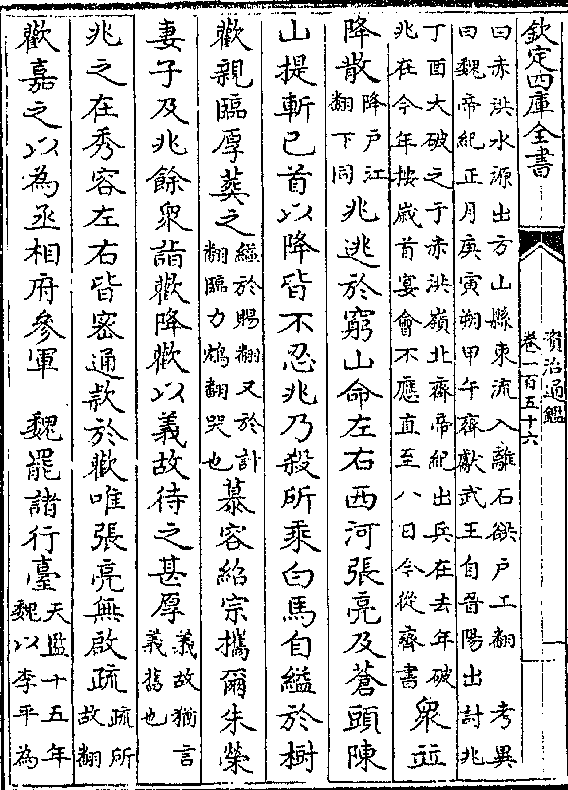 欽定四庫全書
資治通鑑
卷一百五十六
曰赤洪水源出方山縣東流入離石欲戶工翻 考異
曰魏帝紀正月庚寅朔甲午齊獻武王自晉陽出討兆
丁酉大破之于赤洪嶺北齊帝紀出兵在去年破
兆在今年按歲首宴會不應直至八日今從齊書
衆並
降散
降戶江
翻下同
兆逃於窮山命左右西河張亮及蒼頭陳
山提斬已首以降皆不忍兆乃殺所乘白馬自縊於樹
歡親臨厚葬之
縊於賜翻又於計
翻臨力鴆翻哭也
慕容紹宗攜爾朱榮
妻子及兆餘衆詣歡降歡以義故待之甚厚
義故猶言
義舊也
兆之在秀容左右皆密通款於歡唯張亮無啟疏
疏所
故翻
歡嘉之以為丞相府參軍 魏罷諸行臺
天監十五年
魏以李平為